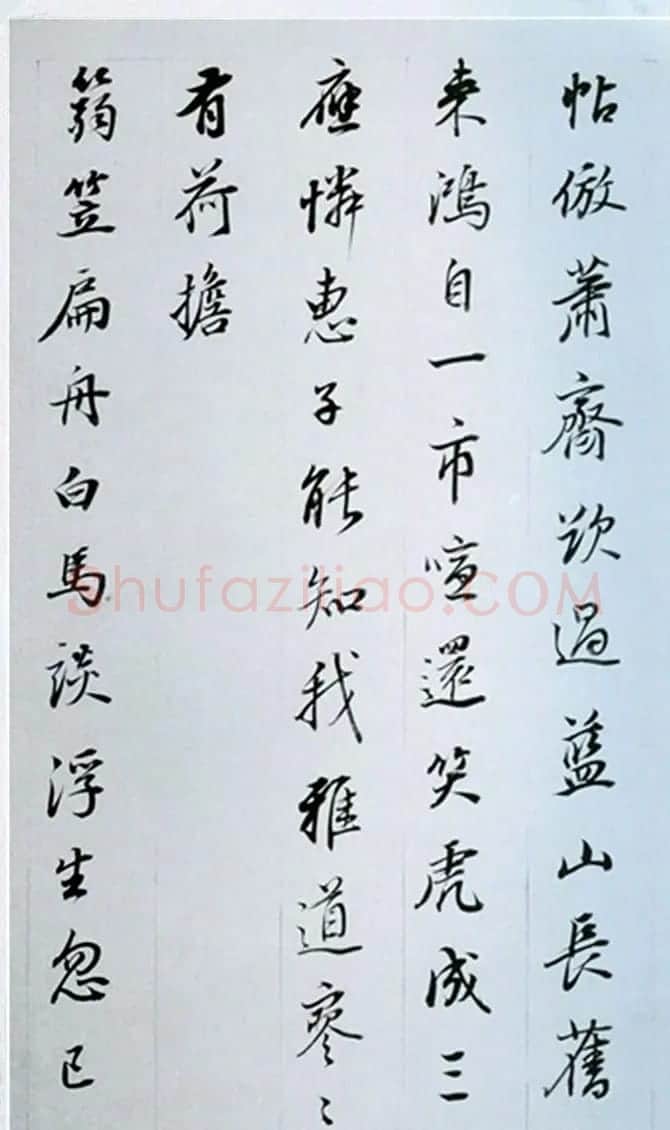 帖倣蕭齋過藍山長舊
来鴻自一市喧還笑虎成三
應憐惠子能知我雅道寥〻
有荷擔
篛笠扁舟白馬談浮生忽已
shufaziliao.COM